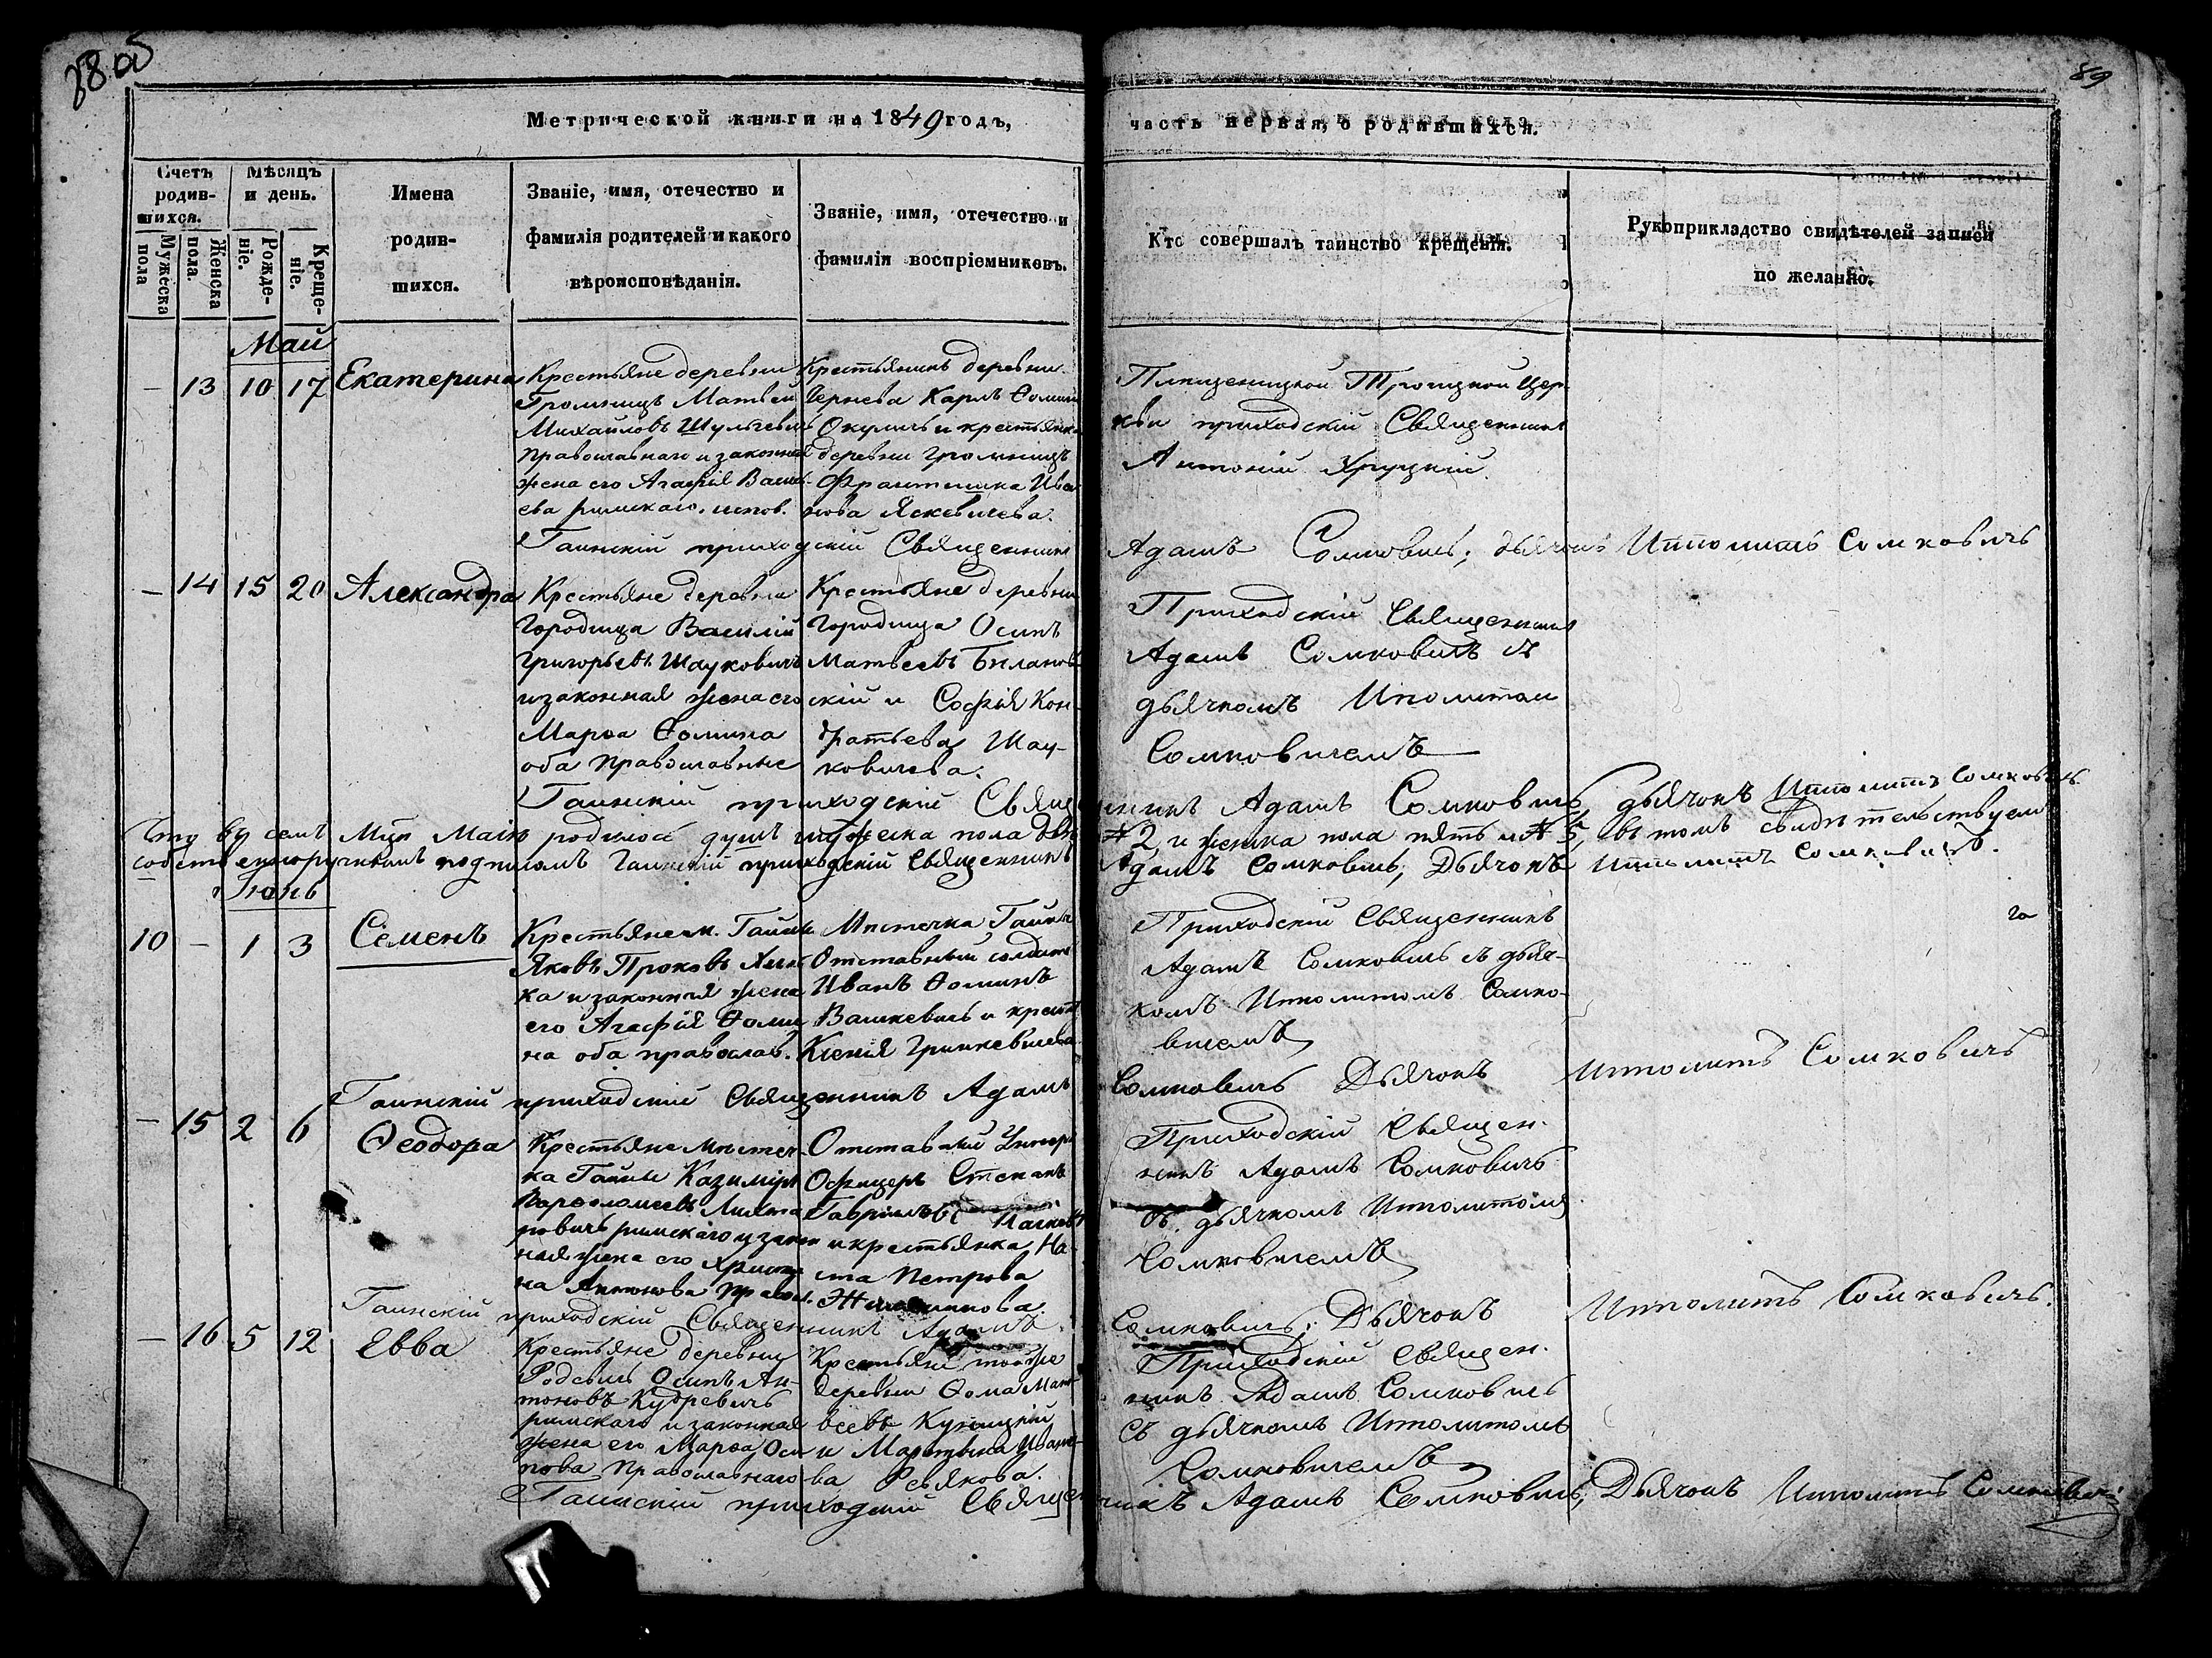 88 об
89
Метрической книги на 1849 годъ,
часть первая, о родившихся.
Счетъ родив-
шихся.
Мужеска пола
Женска пола.
Мѣсяцъ
и день.
Рожде-
ніе.
Креще-
ніе.
Имена
родив-
шихся.
Званіе, имя, отечество и
фамилія родителей и какого
вѣроисповѣданія.
Званіе, имя, отечество и
фамилія воспріемниковъ.
Кто совершалъ таинство крещенія.
Рукоприкладство свидѣтелей записи
по желанію.
Май
— 13 10 17 Екатерина
Крестьяне деревни
Громницъ Матвей
Михайловъ Шульгевичъ
православнаго и законная
жена его Агафія Васил-
ева римскаго. испов.
Крестьянинъ деревни
Карлъ Ѳомин
Окуличъ и крестьянка
деревни Громницъ
Франтишка Ива-
нова Яскевичева.
Троицкой Цер-
кви приходскій Священникъ
Антоній Хруцкій
Гаинскій приходскій Священникъ
Адамъ Сомковичъ; дьячокъ Ипполитъ Сомковичъ
— 14 15 20 Александра
Крестьяне деревни
Городища Василій
Григорьевъ Шауковичъ
и законная жена его
Марѳа Ѳомина
оба православные
Крестьяне деревни
Городища Осипъ
Матвеевъ Билянов-
скій и Софія Кон-
дратьева Шау-
ковичева.
Приходскій Священникъ
Адамъ Сомковичъ съ
дьячкомъ Иполитом
Сомковичемъ
Гаинскій приходскій Священникъ Адамъ Сомковичъ, дьячокъ Ипполитъ Сомковичъ.
Что въ семъ Мцѣ Маіѣ родилось душъ мужеска пола двѣ № 2, и женска пола пять № 5, въ томъ свидѣтельствуемъ
собственноручнымъ подписомъ Гаинскій приходскій Священникъ Адамъ Сомковичъ, Дьячокъ Ипполитъ Сомковичъ.
Іюнь
10 — 1 3 Семенъ
Крестьяне м. Гайны
Яковъ Проковъ
ка и законная жена
его Агафія Ѳоми
на оба православ.
Мѣстечка Гайны
Отставный солдатъ
Иванъ Ѳоминъ
Вашкевичъ и крест
Ксенія Гринкевичева
Приходскій Священникъ
Адамъ Сомковичъ съ дьяч-
комъ Ипполитомъ Сомко-
вичемъ
го
Гаинскій приходскій Священникъ Адамъ
Сомковичъ Дьячокъ Ипполитъ Сомковичъ
— 15 2 6 Ѳеодора
Крестьяне мѣстеч-
ка Гайны Казиміръ
Варѳоломеевъ
римскаго и закон
ная жена его Христи
на Антонова правосл.
Отставный Унтеръ
Офицеръ Степанъ
Гавріиловъ
и крестьянка На-
ста Петрова
Приходскій Священ-
никъ Адамъ Сомковичъ
съ. дьячкомъ Ипполитомъ
Сомковичемъ
Гаинскій приходскій Священникъ Адамъ
Сомковичъ; Дьячокъ Ипполитъ Сомковичъ.
— 16 5 12 Евва
Крестьяне деревни
Осипъ Ан-
тоновъ Кудревичъ
римскаго и законная
жена его Марѳа Оси
пова Православнаго
Крестьяне той же
деревни Ѳома Мат-
веевъ
и Мартына Ивано-
ва Ревякова.
Приходскій Священ-
никъ Адамъ Сомковичъ
съ дьячкомъ Ипполитомъ
Сомковичемъ
Гаинскій приходскій Священникъ Адамъ Сомковичъ, Дьячокъ Ипполитъ Сомковичъ